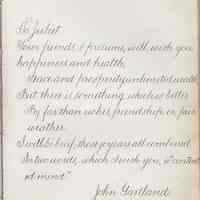 To Juliet
Your friends, I presume, will wish you
happiness and health,
Peace and prosperity, unlimited wealth
But there is something which is better
By far than wishes, friendship or fair
weather.
I will be brief, these joys are all combined
In two words, which I wish you, "a content-
ed mind."
John Gartland